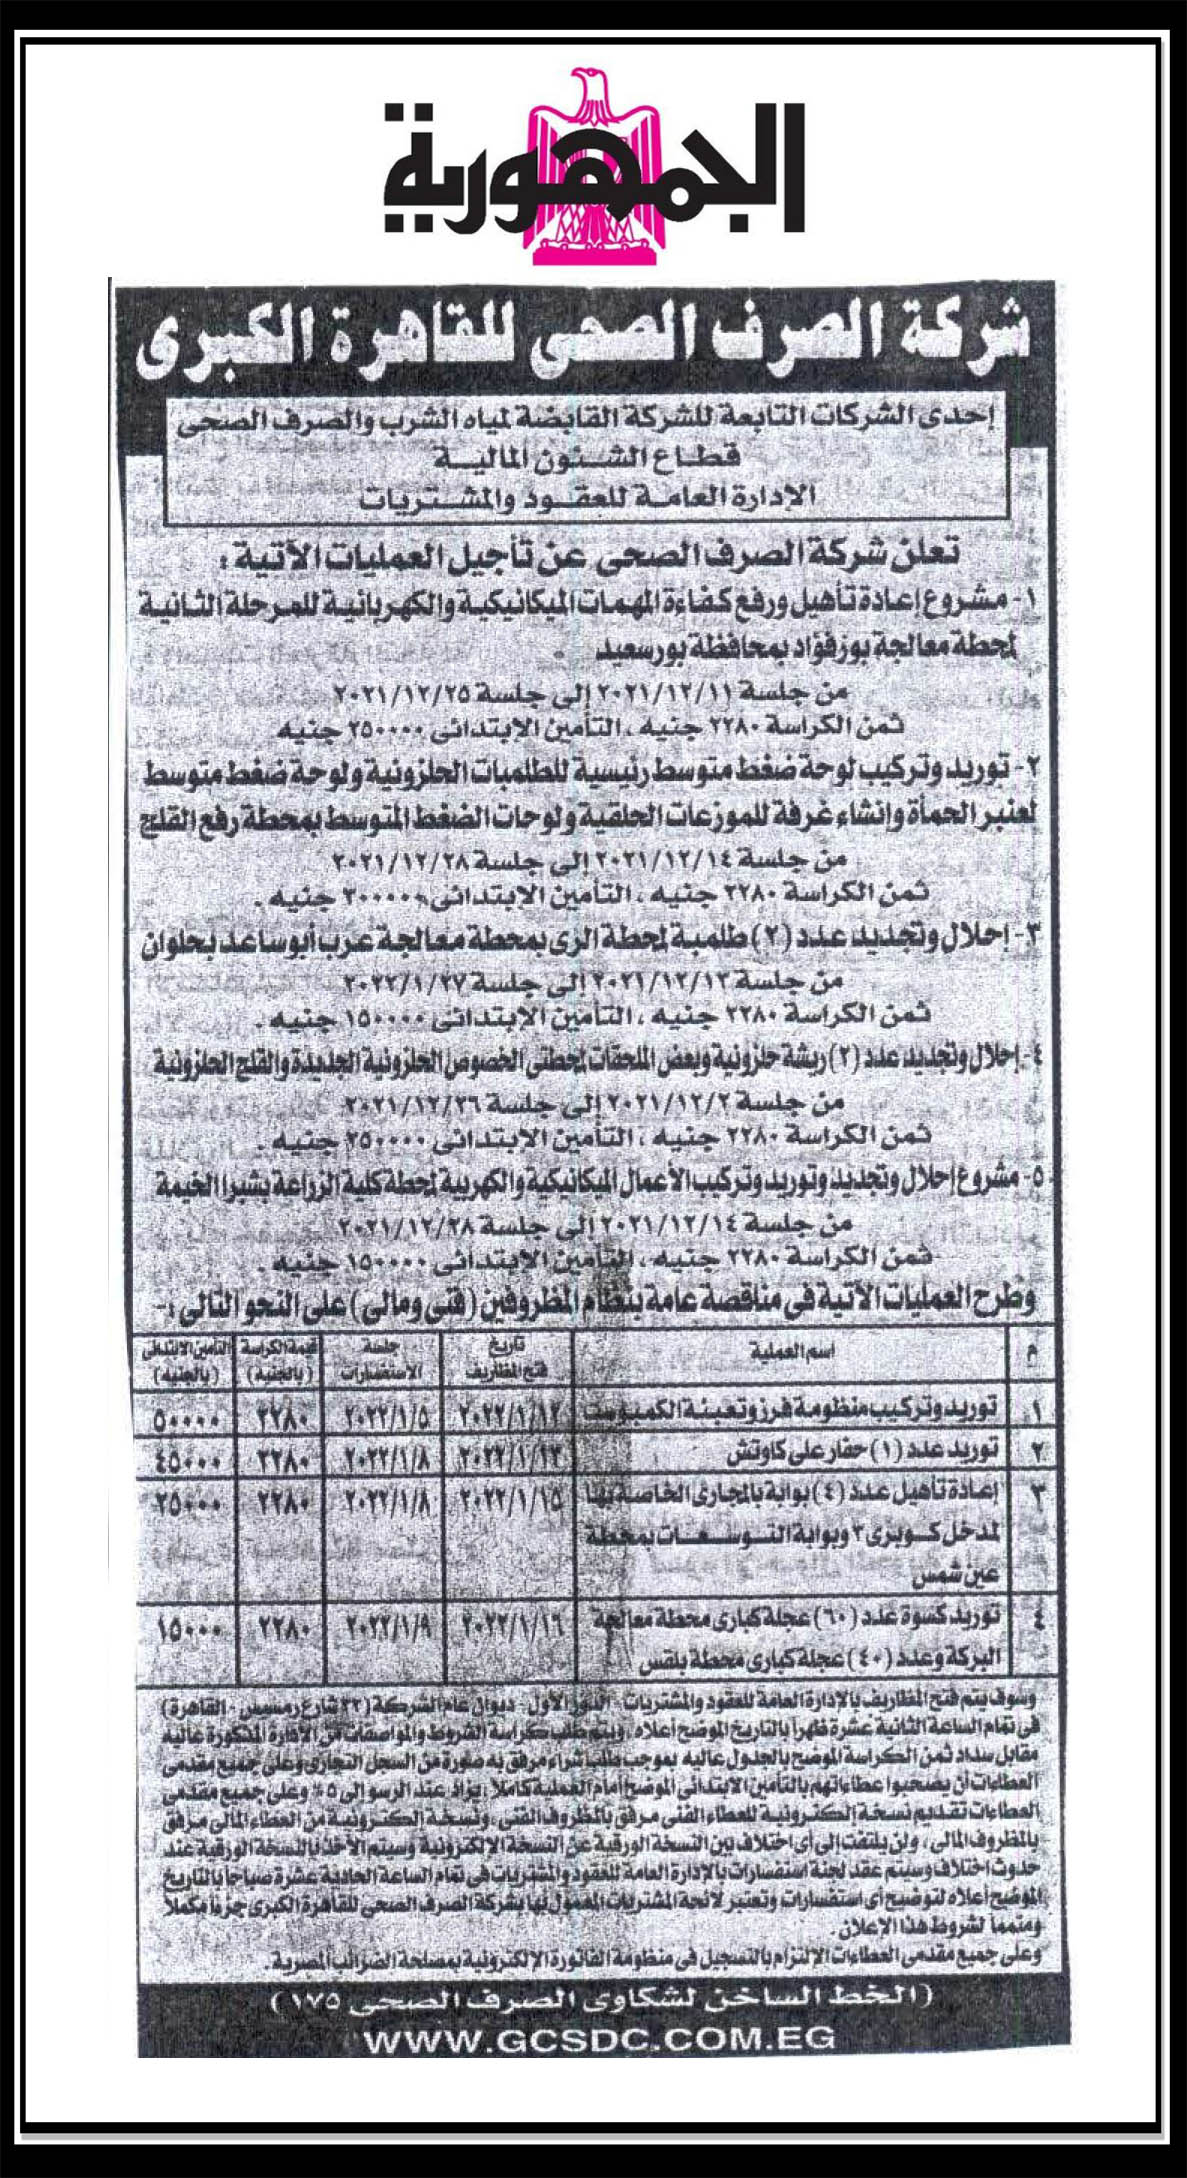 الجمهورية
شركة الصرف الصحى للقاهرة الكبرى
إحدى الشركات التابعة للشركة القابضة لمياه الشرب والصرف الصحى
قطاع الشئون المالية
الإدارة العامة للعقود والمشتريات
تعلن شركة الصرف الصحى عن تأجيل العمليات الآتية :
١- مشروع إعادة تأهيل ورفع كفاءة المهمات الميكانيكية والكهربائية للمرحلة الثانية
لمحطة معالجة بورفؤاد بمحافظة بورسعيد
من جلسة ٢٠٢١/١٢/١١ إلى جلسة ٢٠٢١/١٢/٢٥
ثمن الكراسة ٢٢٨٠ جنيه ، التأمين الابتدائى ٢٥٠٠٠٠ جنيه
٢- توريد وتركيب لوحة ضغط متوسط رئيسية للطلمبات الحلزونية ولوحة ضغط متوسط
لعنبر الحمأة وانشاء غرفة للموزعات الحلقية ولوحات الضغط المتوسط بمحطة رفع القلج
من جلسة ٢٠٢١/١٢/١٤ إلى جلسة ٢٠٢١/١٢/٢٨
ثمن الكراسة ٢٢٨٠ جنيه ، التأمين الابتدائى ٣٠٠٠٠٠ جنيه .
٣- إحلال وتجديد عدد (٢) طلمبة لمحطة الرى بمحطة معالجة عرب أبو ساعد بحلوان
من جلسة ٢٠٢١/١٢/١٢ إلى جلسة ٢٠٢٢/١/٢٧
ثمن الكراسة ٢٢٨٠ جنيه ، التأمين الابتدائى ١٥٠٠٠٠ جنيه .
٤- إحلال وتجديد عدد (٢) ريشة حلزونية وبعض الملحقات لمحطتى الخصوص الحلزونية الجديدة والقلج الحلزونية
من جلسة ٢٠٢١/١٢/٢ إلى جلسة ٢٠٢١/١٢/٢٦
ثمن الكراسة ٢٢٨٠ جنيه ، التأمين الابتدائى ٢٥٠٠٠٠ جنيه .
٥- مشروع إحلال وتجديد وتوريد وتركيب الأعمال الميكانيكية والكهربية لمحطة كلية الزراعة بشبرا الخيمة
من جلسة ٢٠٢١/١٢/١٤ إلى جلسة ٢٠٢١/١٢/٢٨
ثمن الكراسة ٢٢٨٠ جنيه ، التأمين الابتدائى ١٥٠٠٠٠ جنيه .
وطرح العمليات الآتية فى مناقصة عامة بنظام المظروفين (فنى ومالى) على النحو التالى :-
م اسم العملية تاريخ فتح المظاريف جلسة الاستفسارات قيمة الكراسة (بالجنيه) التأمين الابتدائى (بالجنيه)
١ توريد وتركيب منظومة فرز وتعبئة الكمبوست ٢٠٢٢/١/١٢ ٢٠٢٢/١/٥ ٢٢٨٠ ٥٠٠٠٠
٢ توريد عدد (١) حفار على كاوتش ٢٠٢٢/١/١٣ ٢٠٢٢/١/٨ ٢٢٨٠ ٤٥٠٠٠
٣ إعادة تأهيل عدد (٤) بوابة بالمجارى الخاصة بها ٢٠٢٢/١/١٥ ٢٠٢٢/١/٨ ٢٢٨٠ ٢٥٠٠٠
لمدخل كوبرى ٢ وبوابة التوسعات بمحطة
عين شمس
٤ توريد كسوة عدد (٦٠) عجلة كبارى محطة معالجة ٢٠٢٢/١/١٦ ٢٠٢٢/١/٩ ٢٢٨٠ ١٥٠٠٠
البركة وعدد (٤٠) عجلة كبارى محطة بلقس
وسوف يتم فتح المظاريف بالإدارة العامة للعقود والمشتريات - الدور الأول - ديوان عام الشركة (٣٢ شارع رمسيس - القاهرة)
فى تمام الساعة الثانية عشرة ظهراً بالتاريخ الموضح أعلاه ، ويتم طلب كراسة الشروط والمواصفات من الإدارة المذكورة عاليه
مقابل سداد ثمن الكراسة الموضح بالجدول عاليه بموجب طلب شراء مرفق به صورة من السجل التجارى وعلى جميع مقدمى
العطاءات أن يصحبوا عطاءاتهم بالتأمين الابتدائى الموضح أمام العملية كاملاً ، يزاد عند الرسو إلى ٥% وعلى جميع مقدمى
العطاءات تقديم نسخة إلكترونية للعطاء الفنى مرفق بالمظروف الفنى ، ونسخة إلكترونية من العطاء المالى مرفق
بالمظروف المالى ، ولن يلتفت إلى أى اختلاف بين النسخة الورقية عن النسخة الإلكترونية وسيتم الأخذ بالنسخة الورقية عند
حدوث اختلاف وسيتم عقد لجنة استفسارات بالإدارة العامة للعقود والمشتريات فى تمام الساعة الحادية عشرة صباحاً بالتاريخ
الموضح أعلاه لتوضيح أى استفسارات وتعتبر لائحة المشتريات المعمول بها بشركة الصرف الصحى للقاهرة الكبرى جزءاً مكملاً
ومتمماً لشروط هذا الإعلان .
وعلى جميع مقدمى العطاءات الالتزام بالتسجيل فى منظومة الفاتورة الإلكترونية بمصلحة الضرائب المصرية .
(الخط الساخن لشكاوى الصرف الصحى ١٧٥)
WWW.GCSDC.COM.EG